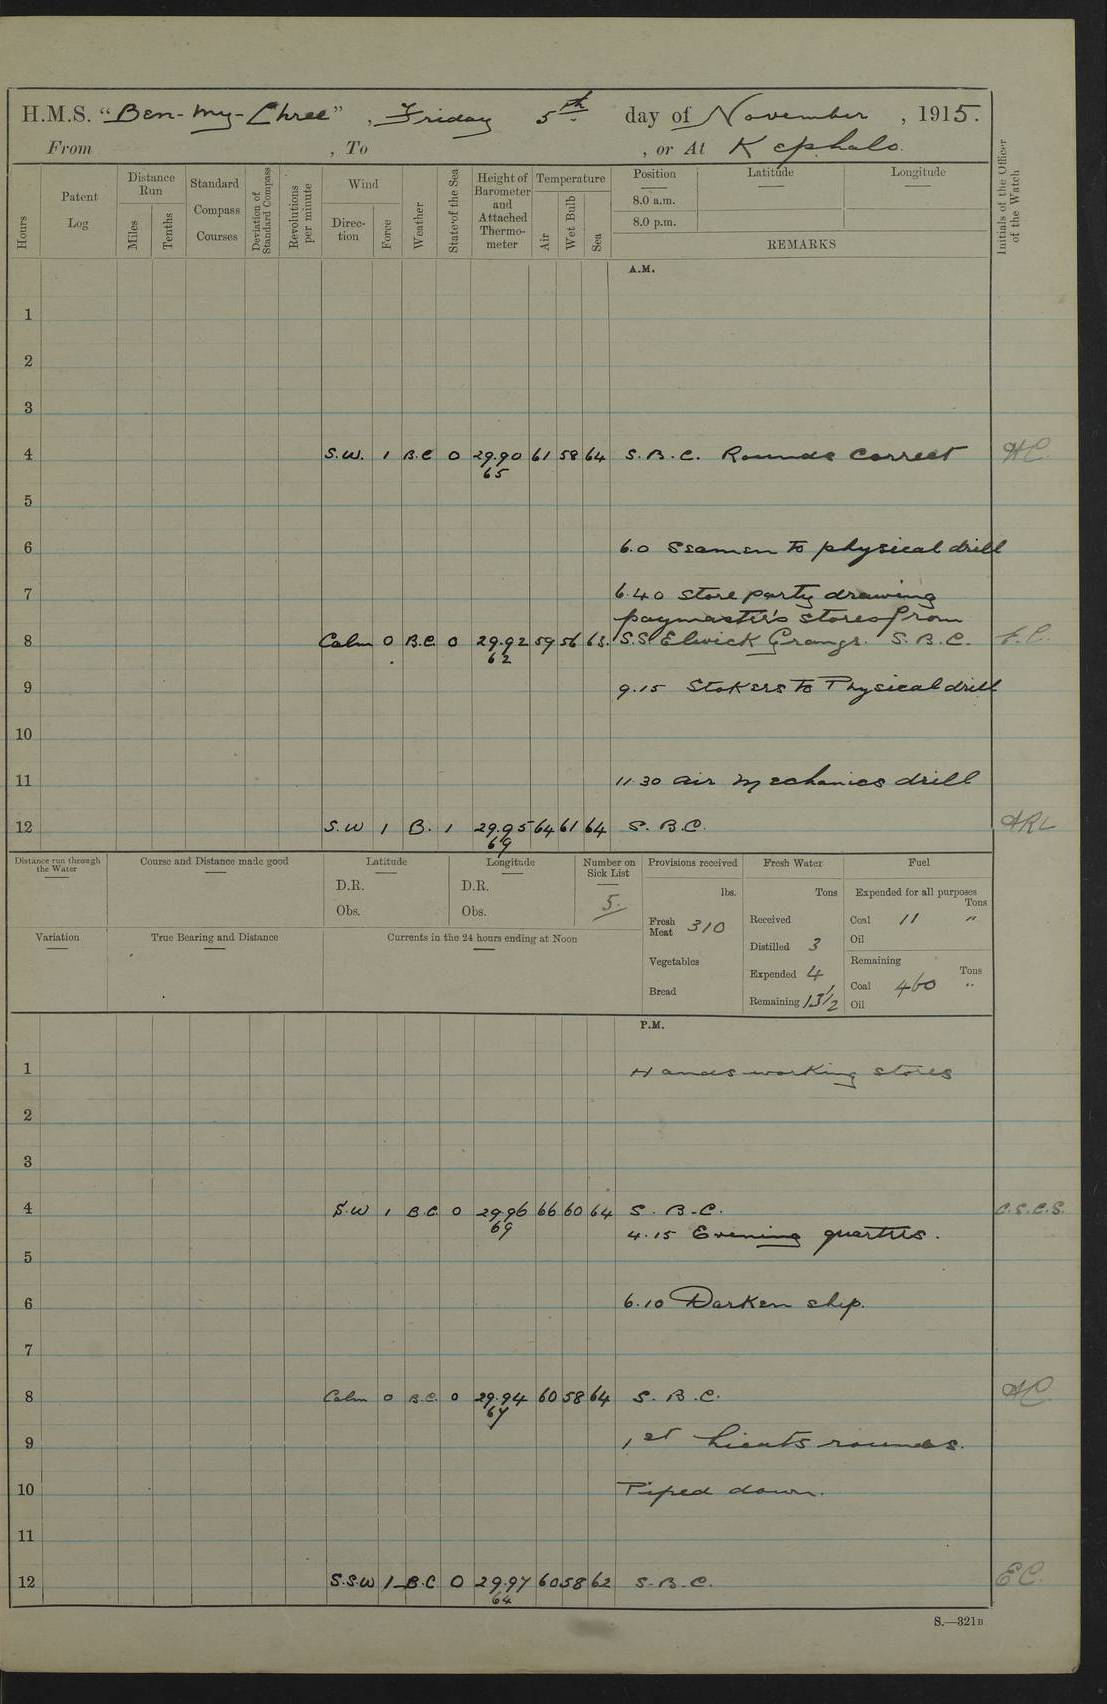 H.M.S. "Ben-my-Chree", Friday 5th day of November, 1915.
From , To , or At Kephalo.
Hours
Patent Log
Distance Run
Miles
Tenths
Standard Compass Courses
Deviation of Standard Compass
Revolutions per minute
Wind
Direction
Force
Weather
State of the Sea
Height of Barometer and Attached Thermometer
Temperature
Air
Wet Bulb
Sea
Position
8.0 a.m.
8.0 p.m.
Latitude
Longitude
REMARKS
Initials of the Officer of the Watch
A.M.
1
2
3
4 S.W. 1 B.C 0 29.90 61 58 64 S.B.C. Rounds Correct HC.
65
5
6 6.0 Seamen to physical drill
7 6.40 Store party drawing
paymaster's stores from
8 Calm 0 B.C. 0 29.92 59 56 63. S.S Elwick Grange. S.B.C. F.C.
62
9 9.15 Stokers to Physical drill
10
11 11.30 Air Mechanics drill
12 S.W 1 B. 1 29.95 64 61 64 S.B.C. ARL
69
Distance run through the Water
Course and Distance made good
Latitude
D.R.
Obs.
Longitude
D.R.
Obs.
Number on Sick List
5.
Provisions received
lbs.
Fresh Meat 310
Vegetables
Bread
Fresh Water
Tons
Received
Distilled 3
Expended 4
Remaining 13½
Fuel
Expended for all purposes
Tons
Coal 11 "
Oil
Remaining
Tons
Coal 460 "
Oil
Variation
True Bearing and Distance
Currents in the 24 hours ending at Noon
P.M.
1 Hands working stores
2
3
4 S.W 1 B.C. 0 29.96 66 60 64 S.B.C. C.S.C.S.
69
4.15 Evening quarters.
5
6 6.10 Darken ship.
7
8 Calm 0 B.C. 0 29.94 60 58 64 S.B.C. HC.
67
9 1st Lieuts rounds.
10 Piped down.
11
12 S.S.W 1 B.C 0 29.97 60 58 62 S.B.C. EC.
64
S.—321B